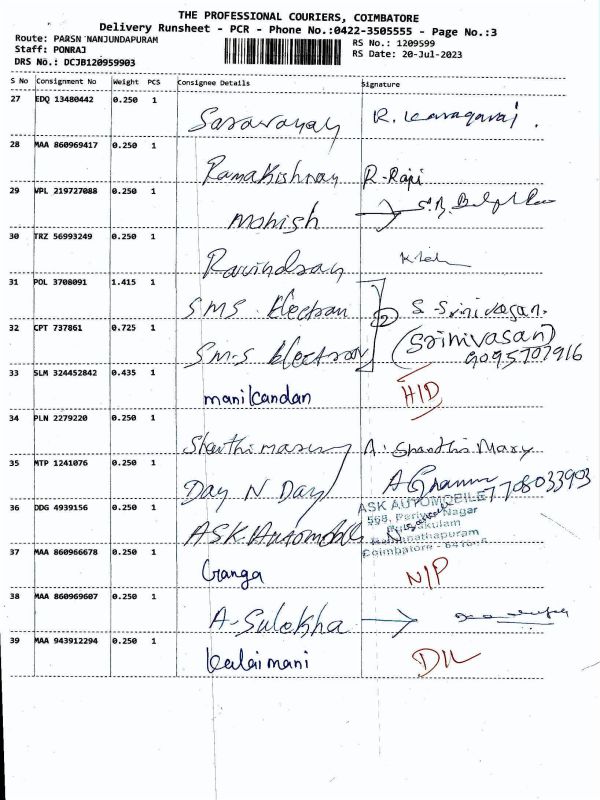 THE PROFESSIONAL COURIERS, COIMBATORE
Delivery Runsheet - PCR - Phone No.:0422-3505555 - Page No.:3
Route: PARSN NANJUNDAPURAM
RS No.: 1209599
Staff: PONRAJ
RS Date: 20-Jul-2023
DRS No.: DCJB120959903
S No Consignment No Weight PCS Consignee Details Signature
27 EDQ 13480442 0.250 1
Saravanan R.
28 MAA 860969417 0.250 1
Ramakishnan R-Raji
29 VPL 219727088 0.250 1
Mohish
30 TRZ 56993249 0.250 1
Ravindran
31 POL 3708091 1.415 1
SMS Electran 2 S-Srinivasan.
32 CPT 737861 0.725 1
SM-S Electran (Srinivasan)
9095707916
33 SLM 324452842 0.435 1
manikandan HID
34 PLN 2279220 0.250 1
Shanthi mary A. Shanthi Mary
35 MTP 1241076 0.250 1
Day N Day 7708033993
36 DDG 4939156 0.250 1
ASK AUTOMOBILE
568, Periyar Nagar
Pulyakulam
Ramanathapuram
Coimbatore - 
ASK Automobile
37 MAA 860966678 0.250 1
Ganga N/P
38 MAA 860969607 0.250 1
A-Sulekha
39 MAA 943912294 0.250 1
kalaimani D/L